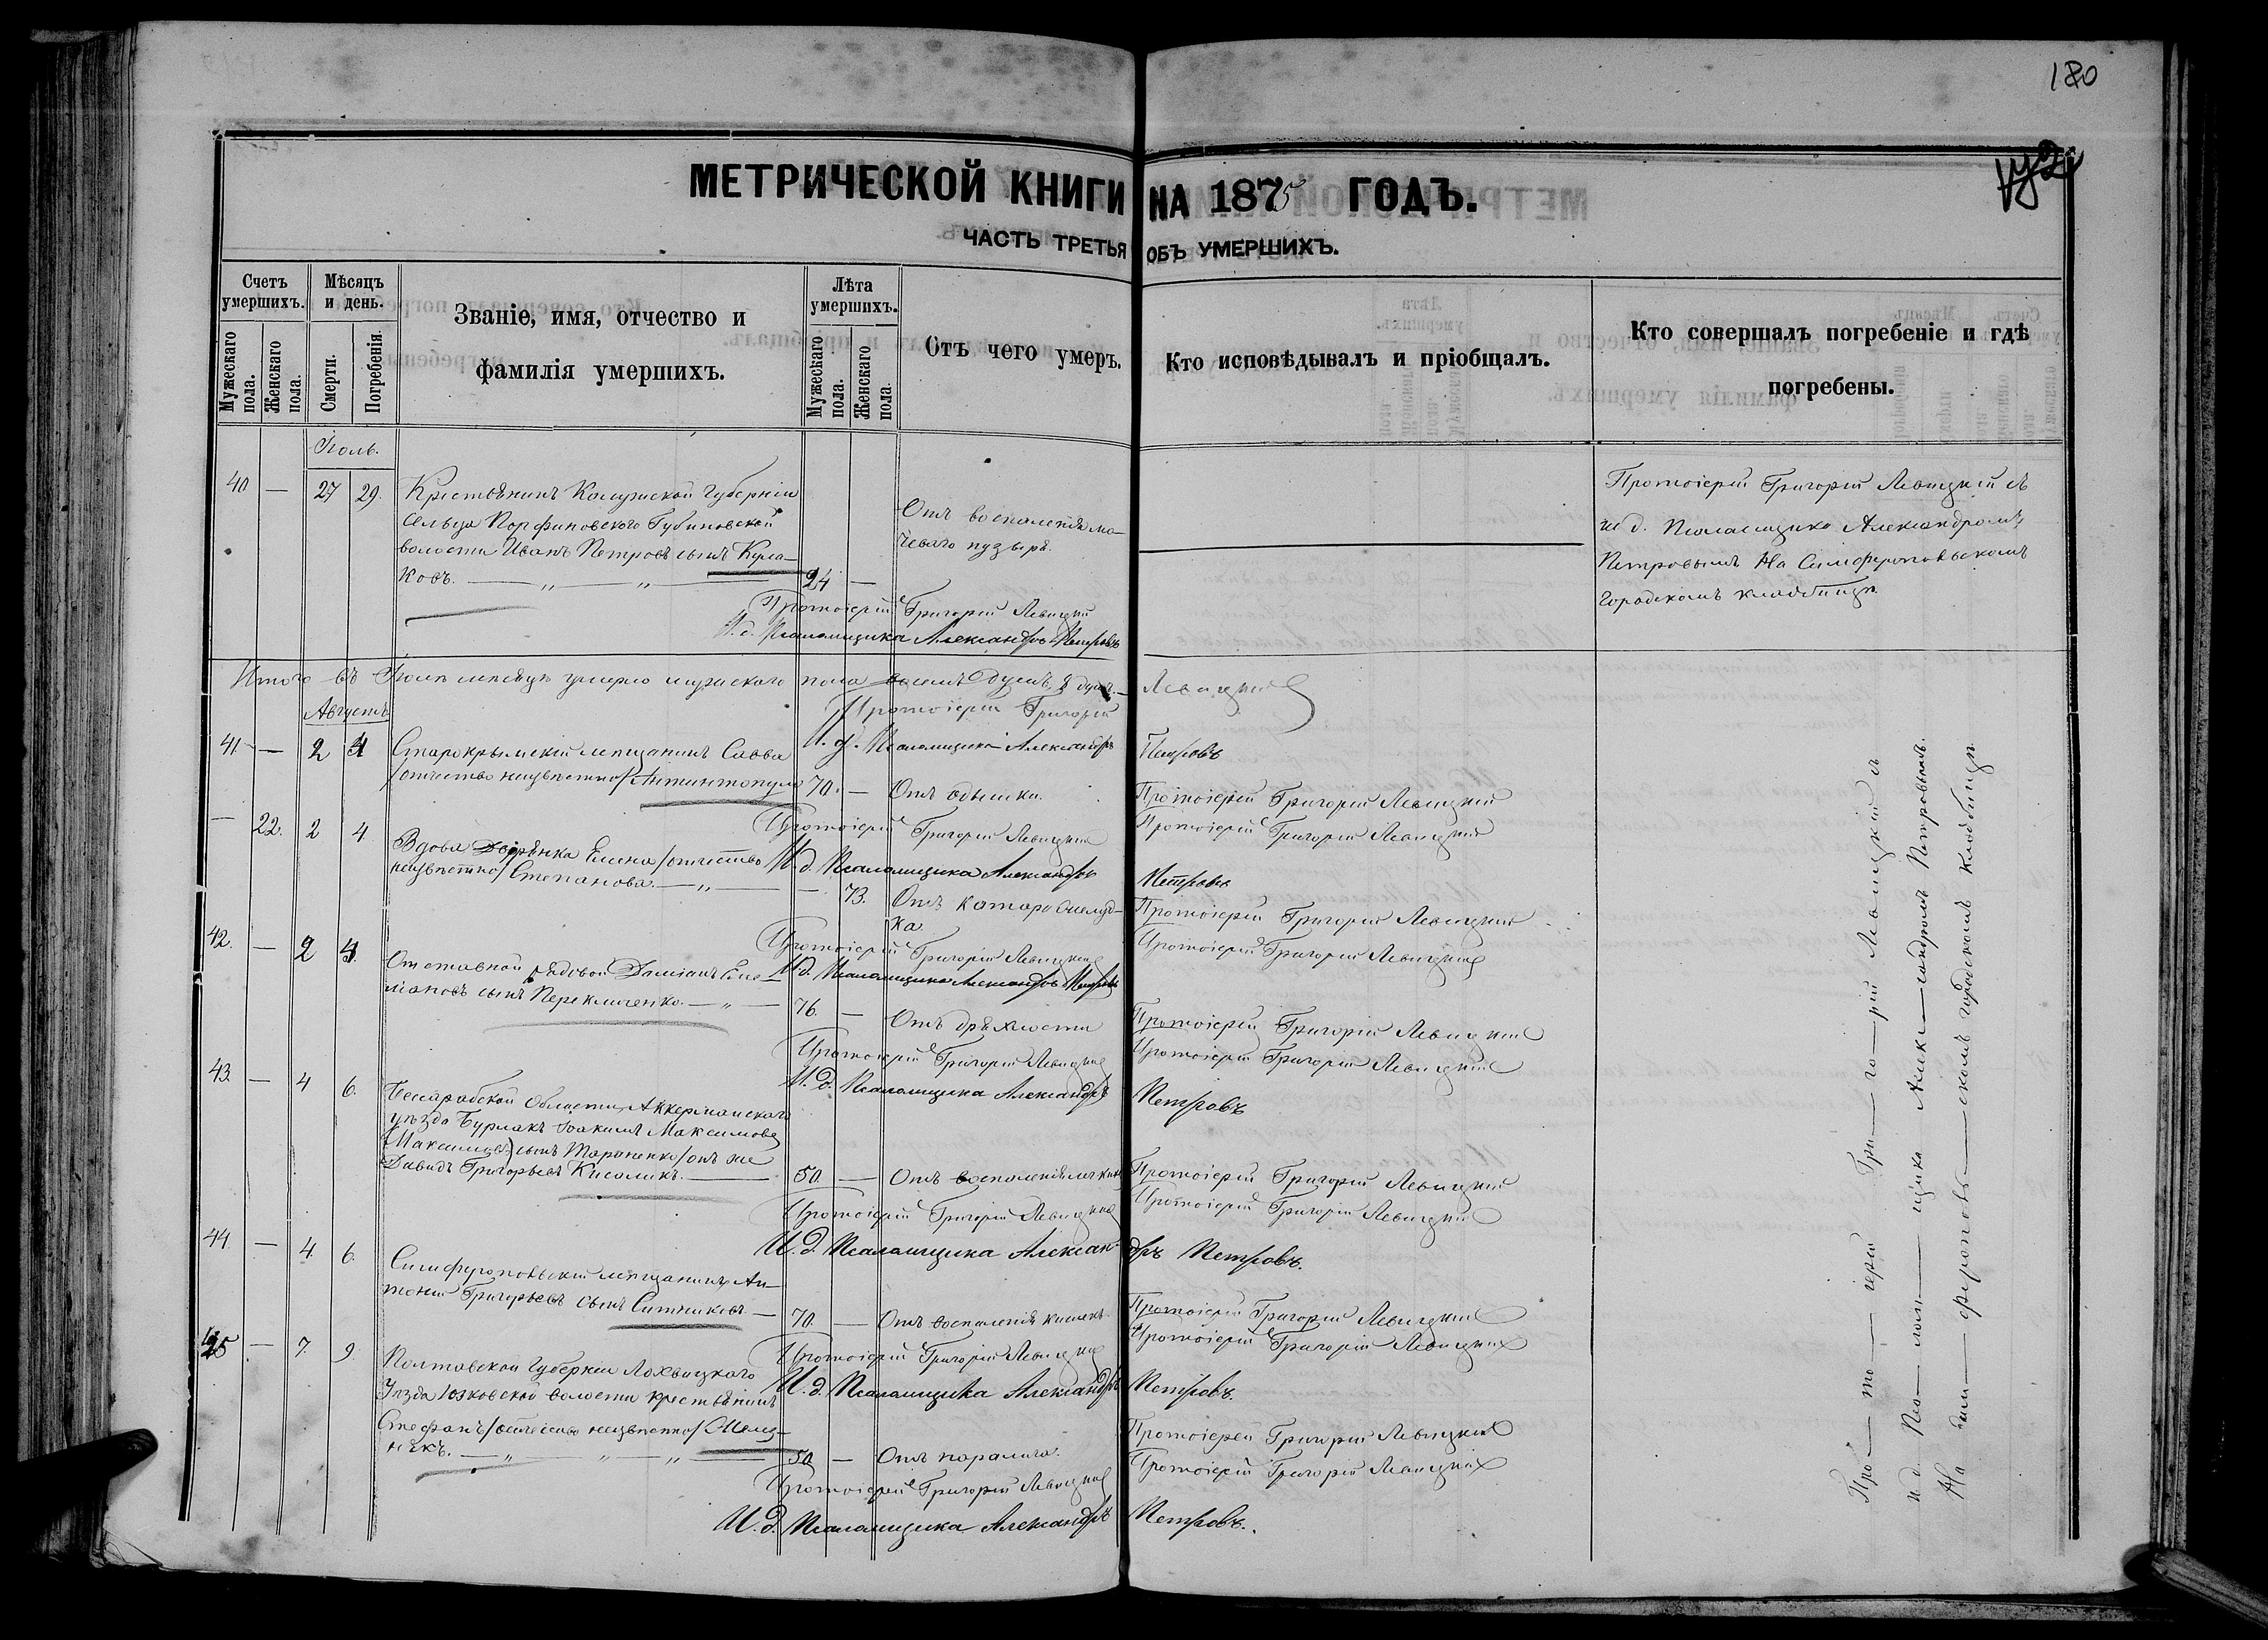 180
МЕТРИЧЕСКОЙ КНИГИ НА 1875 ГОДЪ.
ЧАСТЬ ТРЕТЬЯ ОБЪ УМЕРШИХЪ.
Счетъ умершихъ.
Мужескаго пола.
Женскаго пола.
Мѣсяцъ и день.
Смерти.
Погребенія
Званіе, имя, отчество и
фамилія умершихъ.
Лѣта умершихъ.
Мужескаго пола.
Женскаго пола
Отъ чего умеръ.
Кто исповѣдывалъ и пріобщалъ.
Кто совершалъ погребеніе и гдѣ
погребены.
Іюль.
40 — 27 29.
Крестьянинъ Калужской Губерніи
Сельца Порфиновского Губиновской
волости Иванъ Петровъ сынъ Кула-
ковъ. — „ — „ — 24 —
Отъ воспаленія мо-
чеваго пузыря.
Протоіерей Григорій Левицкій съ
и д. Псаломщика Александромъ
Петровымъ На Симферопольскомъ
Городскомъ кладбищѣ.
Протоіерей Григорій Левицкій
И. д. Псаломщика Александръ Петровъ
Итого въ Іюлѣ мѣсяцѣ умерло мужскаго пола восемь душъ, 8 душ. —
Протоіерей Григорій Левицкій
Августъ
И. д. Псаломщика Александръ Петровъ
41 — 2 4
Старокрымскій мѣщанинъ Савва
/отчество неизвѣстно/ Антинтопуло 70. — Отъ одышки.
Протоіерей Григорій Левицкій
Протоіерей Григорій Левицкій
Протоіерей Григорій Левицкій
И. д. Псаломщика Александръ Петровъ
— 22. 2 4
Вдова Дворянка Елена /отчество
неизвѣстно/ Степанова. — „ — — 73. Отъ катара желуд-
ка.
Протоіерей Григорій Левицкій
Протоіерей Григорій Левицкій
Протоіерей Григорій Левицкій
И. д. Псаломщика Александръ Петровъ
42. — 2 4.
Отставной рядовой Даміанъ Еме-
ліановъ сынъ Перекличенко. — „ — 76. — Отъ дряхлости
Протоіерей Григорій Левицкій
Протоіерей Григорій Левицкій
Протоіерей Григорій Левицкій
И. д. Псаломщика Александръ Петровъ
43. — 4 6.
Бессарабской Области, Аккерманскаго
уѣзда Бурлакъ Іоакимъ Максимовъ
(Максимовъ) сынъ Тараненко /онъ же
Давидъ Григорьевъ Кисаликъ. — 50. — Отъ воспаленія легкихъ
Протоіерей Григорій Левицкій
Протоіерей Григорій Левицкій
Протоіерей Григорій Левицкій
И. д. Псаломщика Александръ Петровъ.
44. — 4. 6.
Симферопольскій мѣщанинъ Ан-
тоній Григорьевъ сынъ Ситниковъ. — 70. — Отъ воспаленія кишекъ.
Протоіерей Григорій Левицкій
Протоіерей Григорій Левицкій
Протоіерей Григорій Левицкій
И. д. Псаломщика Александръ Петровъ.
45 — 7. 9.
Полтавской Губерніи Лохвицкаго
Уѣзда Юзковской волости крестьянинъ
Стефанъ /отчество неизвѣстно/ Мельд-
някъ. — „ — „ — „ — 50 — Отъ паралича.
Протоіерей Григорій Левицкій
Протоіерей Григорій Левицкій
Протоіерей Григорій Левицкій
И. д. Псаломщика Александръ Петровъ.
Про — то — іерей Гри — го — рій Левицкій съ
и. д. Пса — лом — щика Алек — сандромъ Петровымъ.
На Сим — ферополь — скомъ городскомъ кладбищѣ.